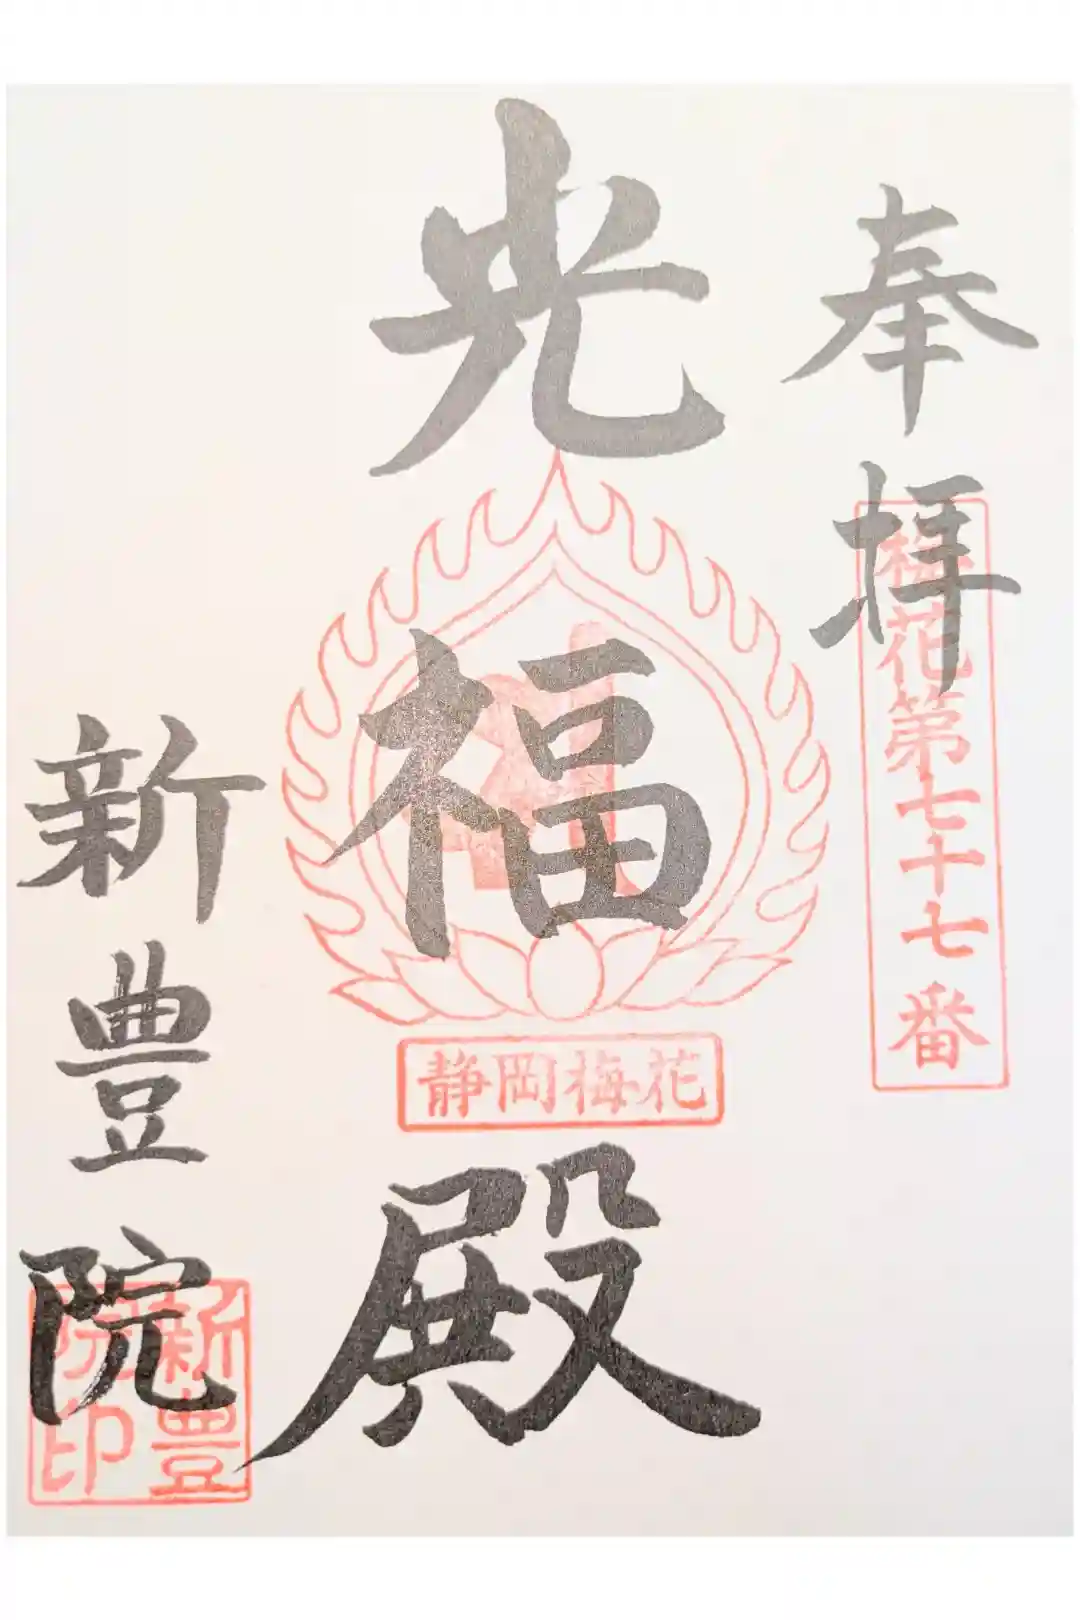 奉拝
梅花第七十七番
光福殿
静岡梅花
新豊院
新豊院印